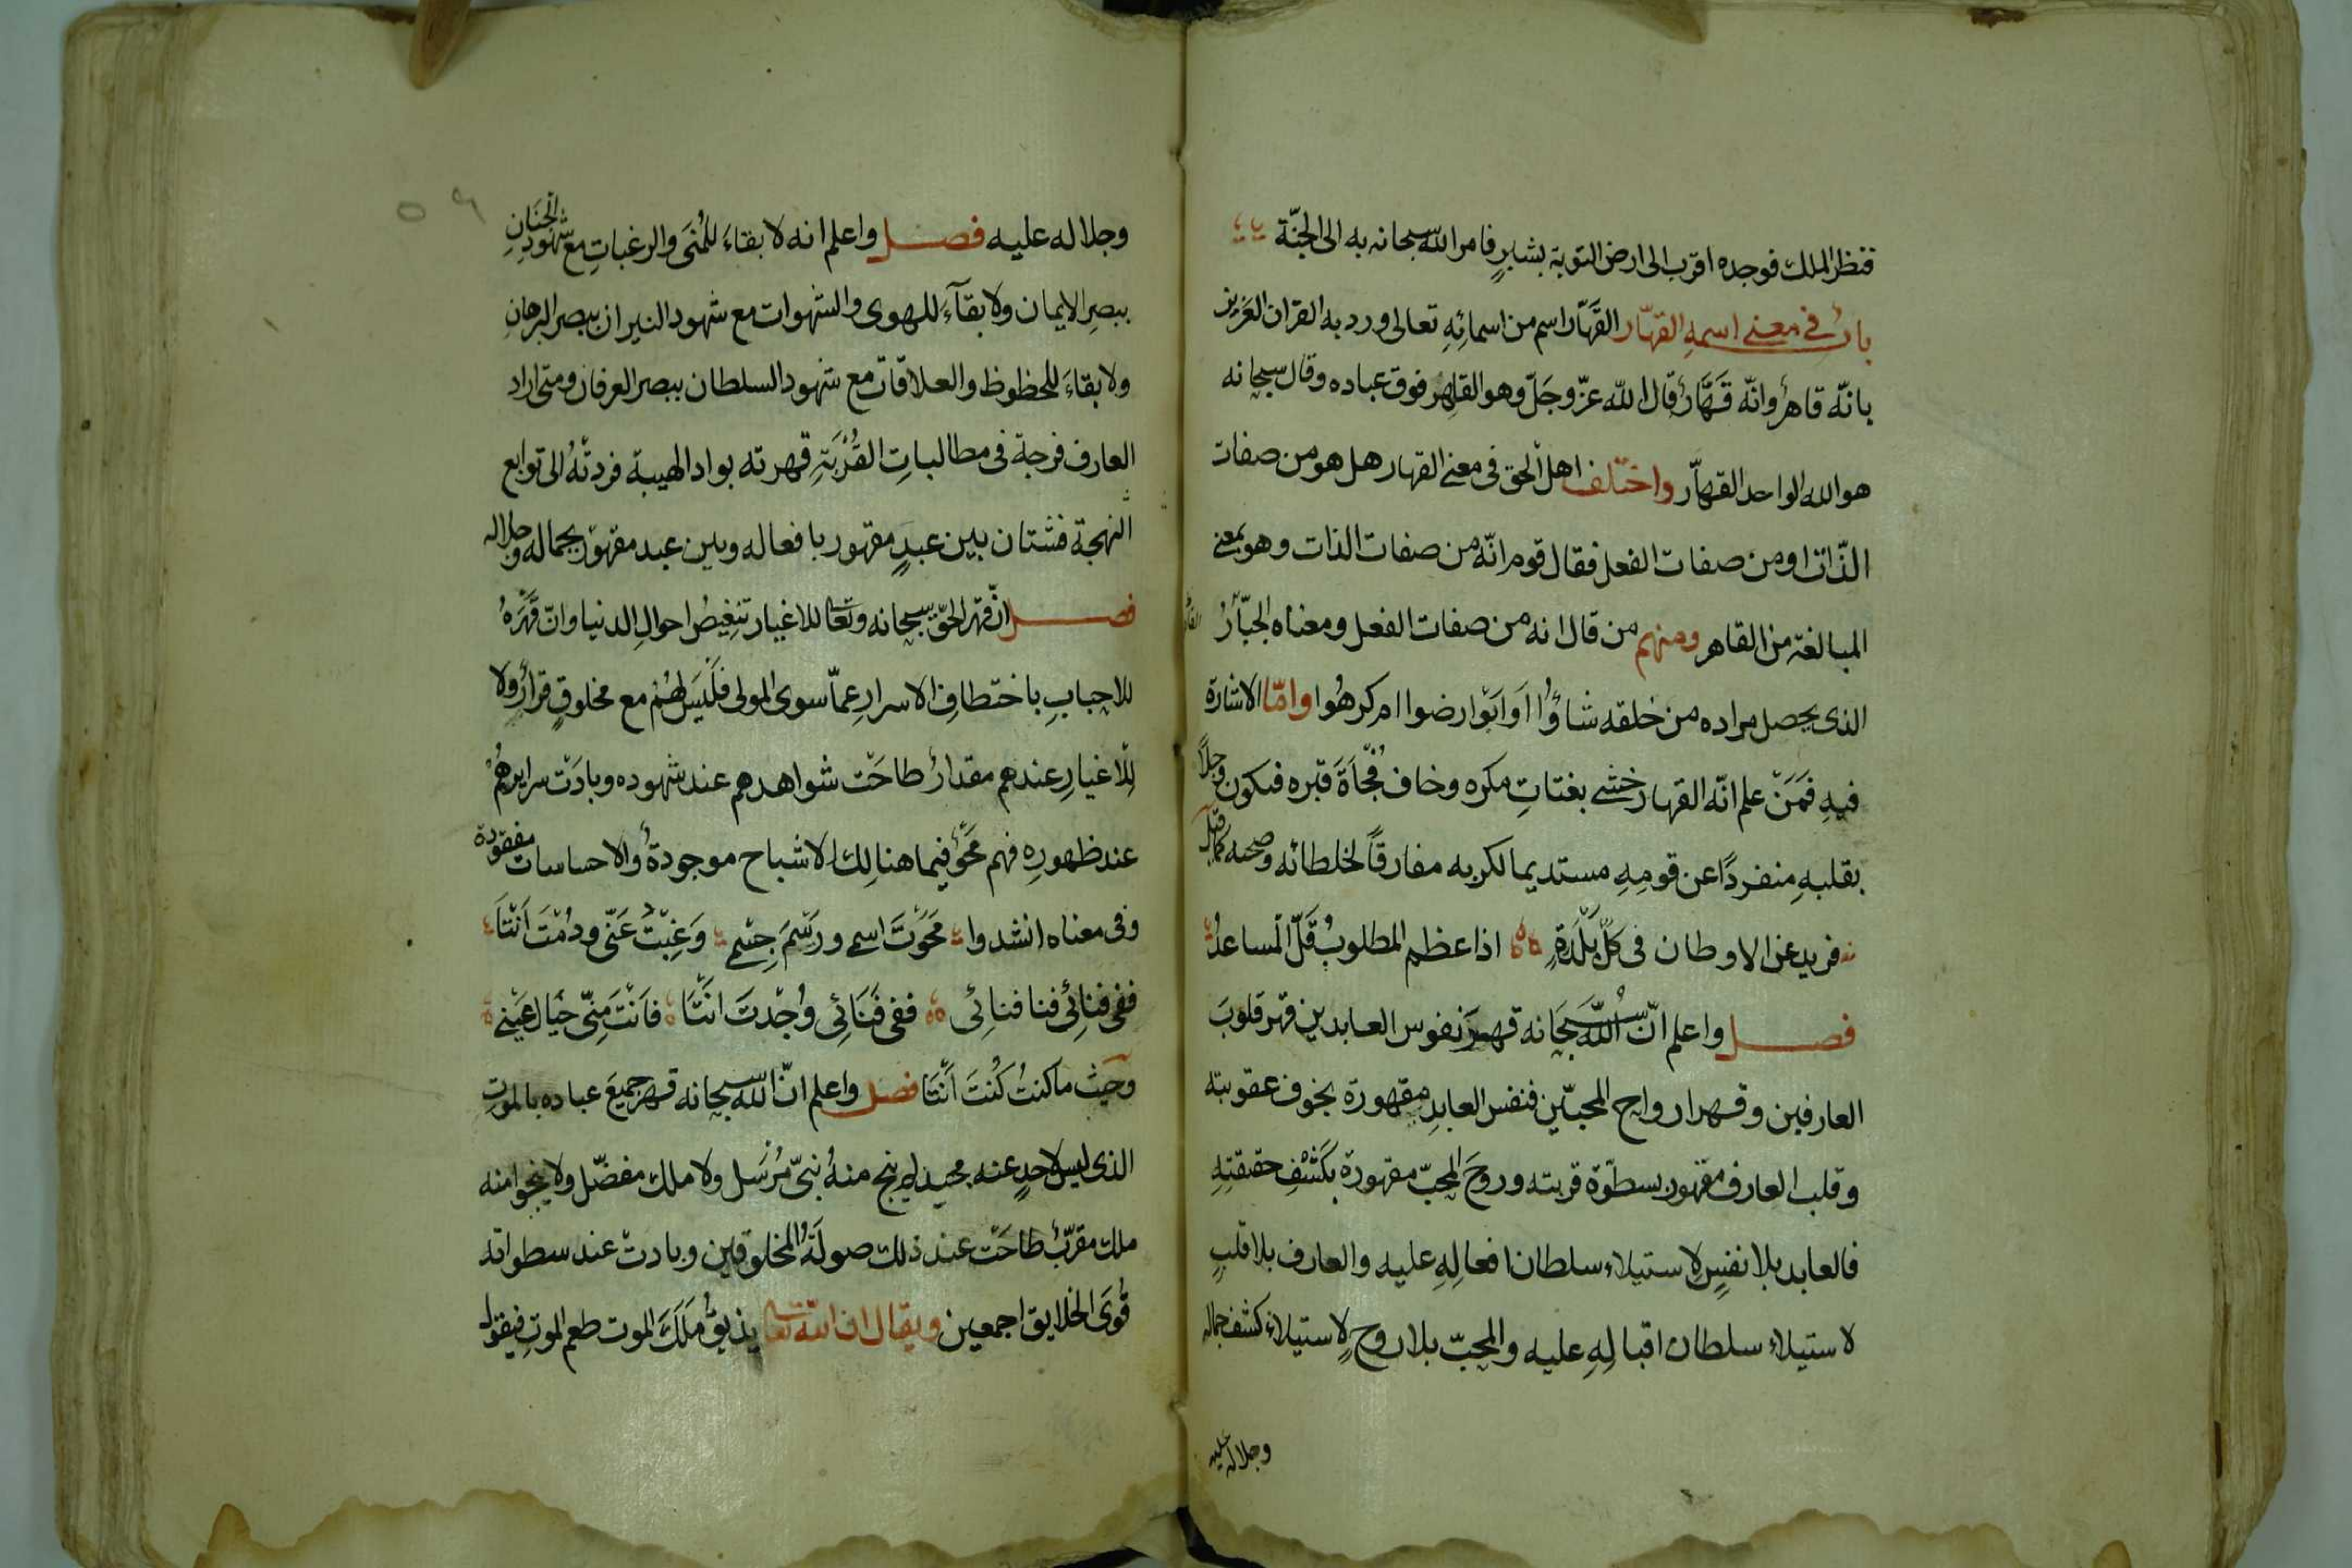 فنظر الملك فوجده اقرب الى ارض التوبة بشبرٍ فامر الله سبحانه به الى الجنّة
بابٌ في معنى اسمهِ القهّار القَهّار اسم من اسمائِهِ تعالى ورد به القران العَزيز
بانّه قاهرٌ وانّه قَهّارٌ قال اللّه عزّ وجَلّ وهو القاهر فوق عباده وقال سبحانه
هو الله الواحد القهّار واختلف اهل الحق في معنى القهار هل هو من صفات
الذّات او من صفات الفعل فقال قوم انّه من صفات الذات وهو بمعنى
المبالغة من القاهر ومنهم من قال انه من صفات الفعل ومعناه الجبّارُ
الذى يحصل مراده من خلقه شاؤُا اَو اَبَوْا رضوا ام كرهُوا وامّا الاشارة
فيهِ فَمَنْ علم انّه القهار خشى بغتاتِ مكره وخاف فُجْاَةَ قهره فيكون وجلًا
بقلبهِ منفردًا عن قومِهِ مستديما لكربه مفارقًا لخلطائه وصحبه كما قيل
فريد عن الاوطان فى كلّ بَلْدَةٍ اذا عظم المطلوبُ قَلّ المساعدُ
فصل واعلم انّ اللّهَ سُبحَانه قهر نفوس العابدين قهر قلوبَ
العارفين وقهر ارواح المحبّين فنفس العابدِ مقهورة بخوف عقوبته
وقلب العارف مقهور بسطوَة قربته وروحَ المحبّ مقهورة بكَشْفِ حقيقتِهِ
فالعابد بلا نفسٍ لاستيلاء سلطان افعالِهِ عليه والعارف بلا قلبٍ
لاستيلاء سلطان اقبالِهِ عليه والمحبّ بلا روحٍ لاستيلاء كشف جماله
وجلاله عليه
وجلاله عليه فصل واعلم انه لا بقاءَ للمُنَى والرغباتِ مع شهودِ الجنَانِ
ببصرِ الايمان ولا بقآءَ للهوى والشهوات مع شهود النيران ببصر البرهانِ
ولا بقاءَ للحظوظ والعلاقات مع شهود السلطان ببصر العرفان ومتى اراد
العارف فرجة فى مطالباتِ القُرْبَةِ قهرته بواد الهيبة فردتْهُ الى توابع
النهجة فشتان بين عبدٍ مقهور بافعاله وبين عبد مقهور بجماله وجلاله
فصل انّ قهر الحقّ سبحانه وتعالى للاغيار تنغيصُ احوالِ الدنيا وانّ قَهْرَهُ
للاحبابِ باختطافِ الاسرارِ عمّا سوى المولى فلَيسَ لهُمْ مع مخلوقٍ قرارٌ ولا
للاغيارِ عندهم مقدارٌ طاحَتْ شواهدهم عند شهوده وبادَتْ سرايرهُمْ
عند ظهورِهِ فهم مَحْوٌ فيما هنالِك الاشباح موجودةٌ والاحساسات مفقودة
وفى معناه انشدوا مَحَوْتَ اسمى ورَسْمَ جِسْمى وَغِبْتُ عَنّى ودُمْتَ اَنْتَا
ففى فنائِى فنا فنائِى ففى فَنَائِى وُجْدتَ انْتَا فاَنْتَ مِنّى خيال عَيْنى
وحيْث ما كنتُ كُنتَ اَنْتَا فصل واعلم انّ الله سبحانه قهر جميعَ عباده بالموت
الذى ليس لاحدٍ عنه محيد لم ينج منهُ نبىّ مُرْسَل ولا ملك مفضّل ولا ينجوا منه
ملك مقرّبٌ طاحَتْ عند ذلك صولَةُ المخلوقين وبادتْ عند سطواته
قُوَى الخلايق اجمعين ويقال ان الله تعالى يذيقُ مَلَكَ الموت طعم الموتِ فيقول